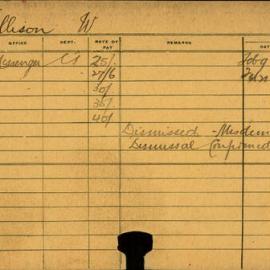 llison W
OFFICE DEPT. RATE OF PAY REMARKS DAT
essenger 25/-
27/6
30/-
35/-
40/-
Dismissed - Misdem
Dismissal Confirmed